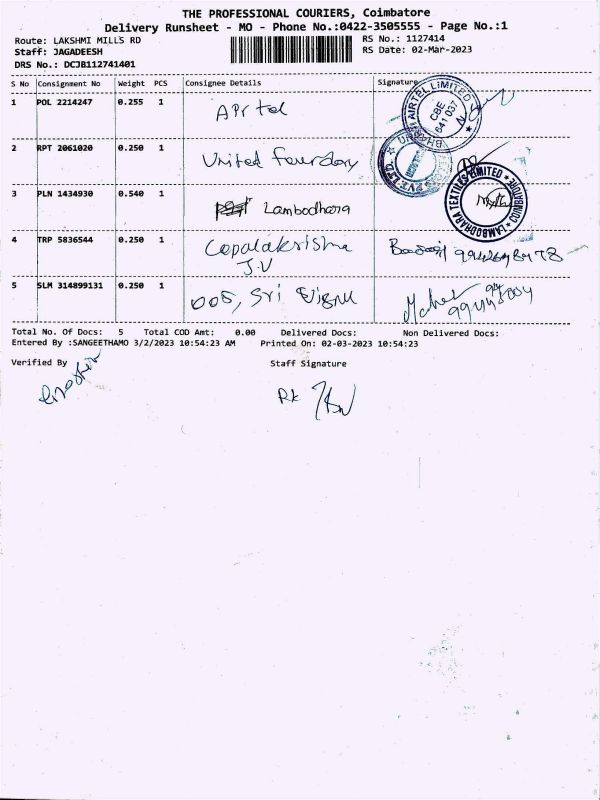 THE PROFESSIONAL COURIERS, Coimbatore
Delivery Runsheet - MO - Phone No.:0422-3505555 - Page No.:1
Route: LAKSHMI MILLS RD
RS No.: 1127414
Staff: JAGADEESH
RS Date: 02-Mar-2023
DRS No.: DCJB112741401
S No Consignment No Weight PCS Consignee Details Signature
1 POL 2214247 0.255 1 Airtel
BHARTI AIRTEL LIMITED
CBE
641 037
2 RPT 2061020 0.250 1 United Foundary
3 PLN 1434930 0.540 1 Lambodhara
LAMBODHARA TEXTILES LIMITED ★ COIMBATORE ★
4 TRP 5836544 0.250 1 Gopalakrishna
J.V
5 SLM 314899131 0.250 1 005, Sri Vignu
Total No. Of Docs: 5 Total COD Amt: 0.00 Delivered Docs: Non Delivered Docs:
Entered By :SANGEETHAMO 3/2/2023 10:54:23 AM Printed On: 02-03-2023 10:54:23
Verified By Staff Signature
RK